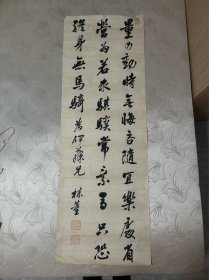 量力動時無悔吝隨宜樂處省
營為若求騏驥常乘馬只恐
終身無馬騎 為伊藤兄 林董